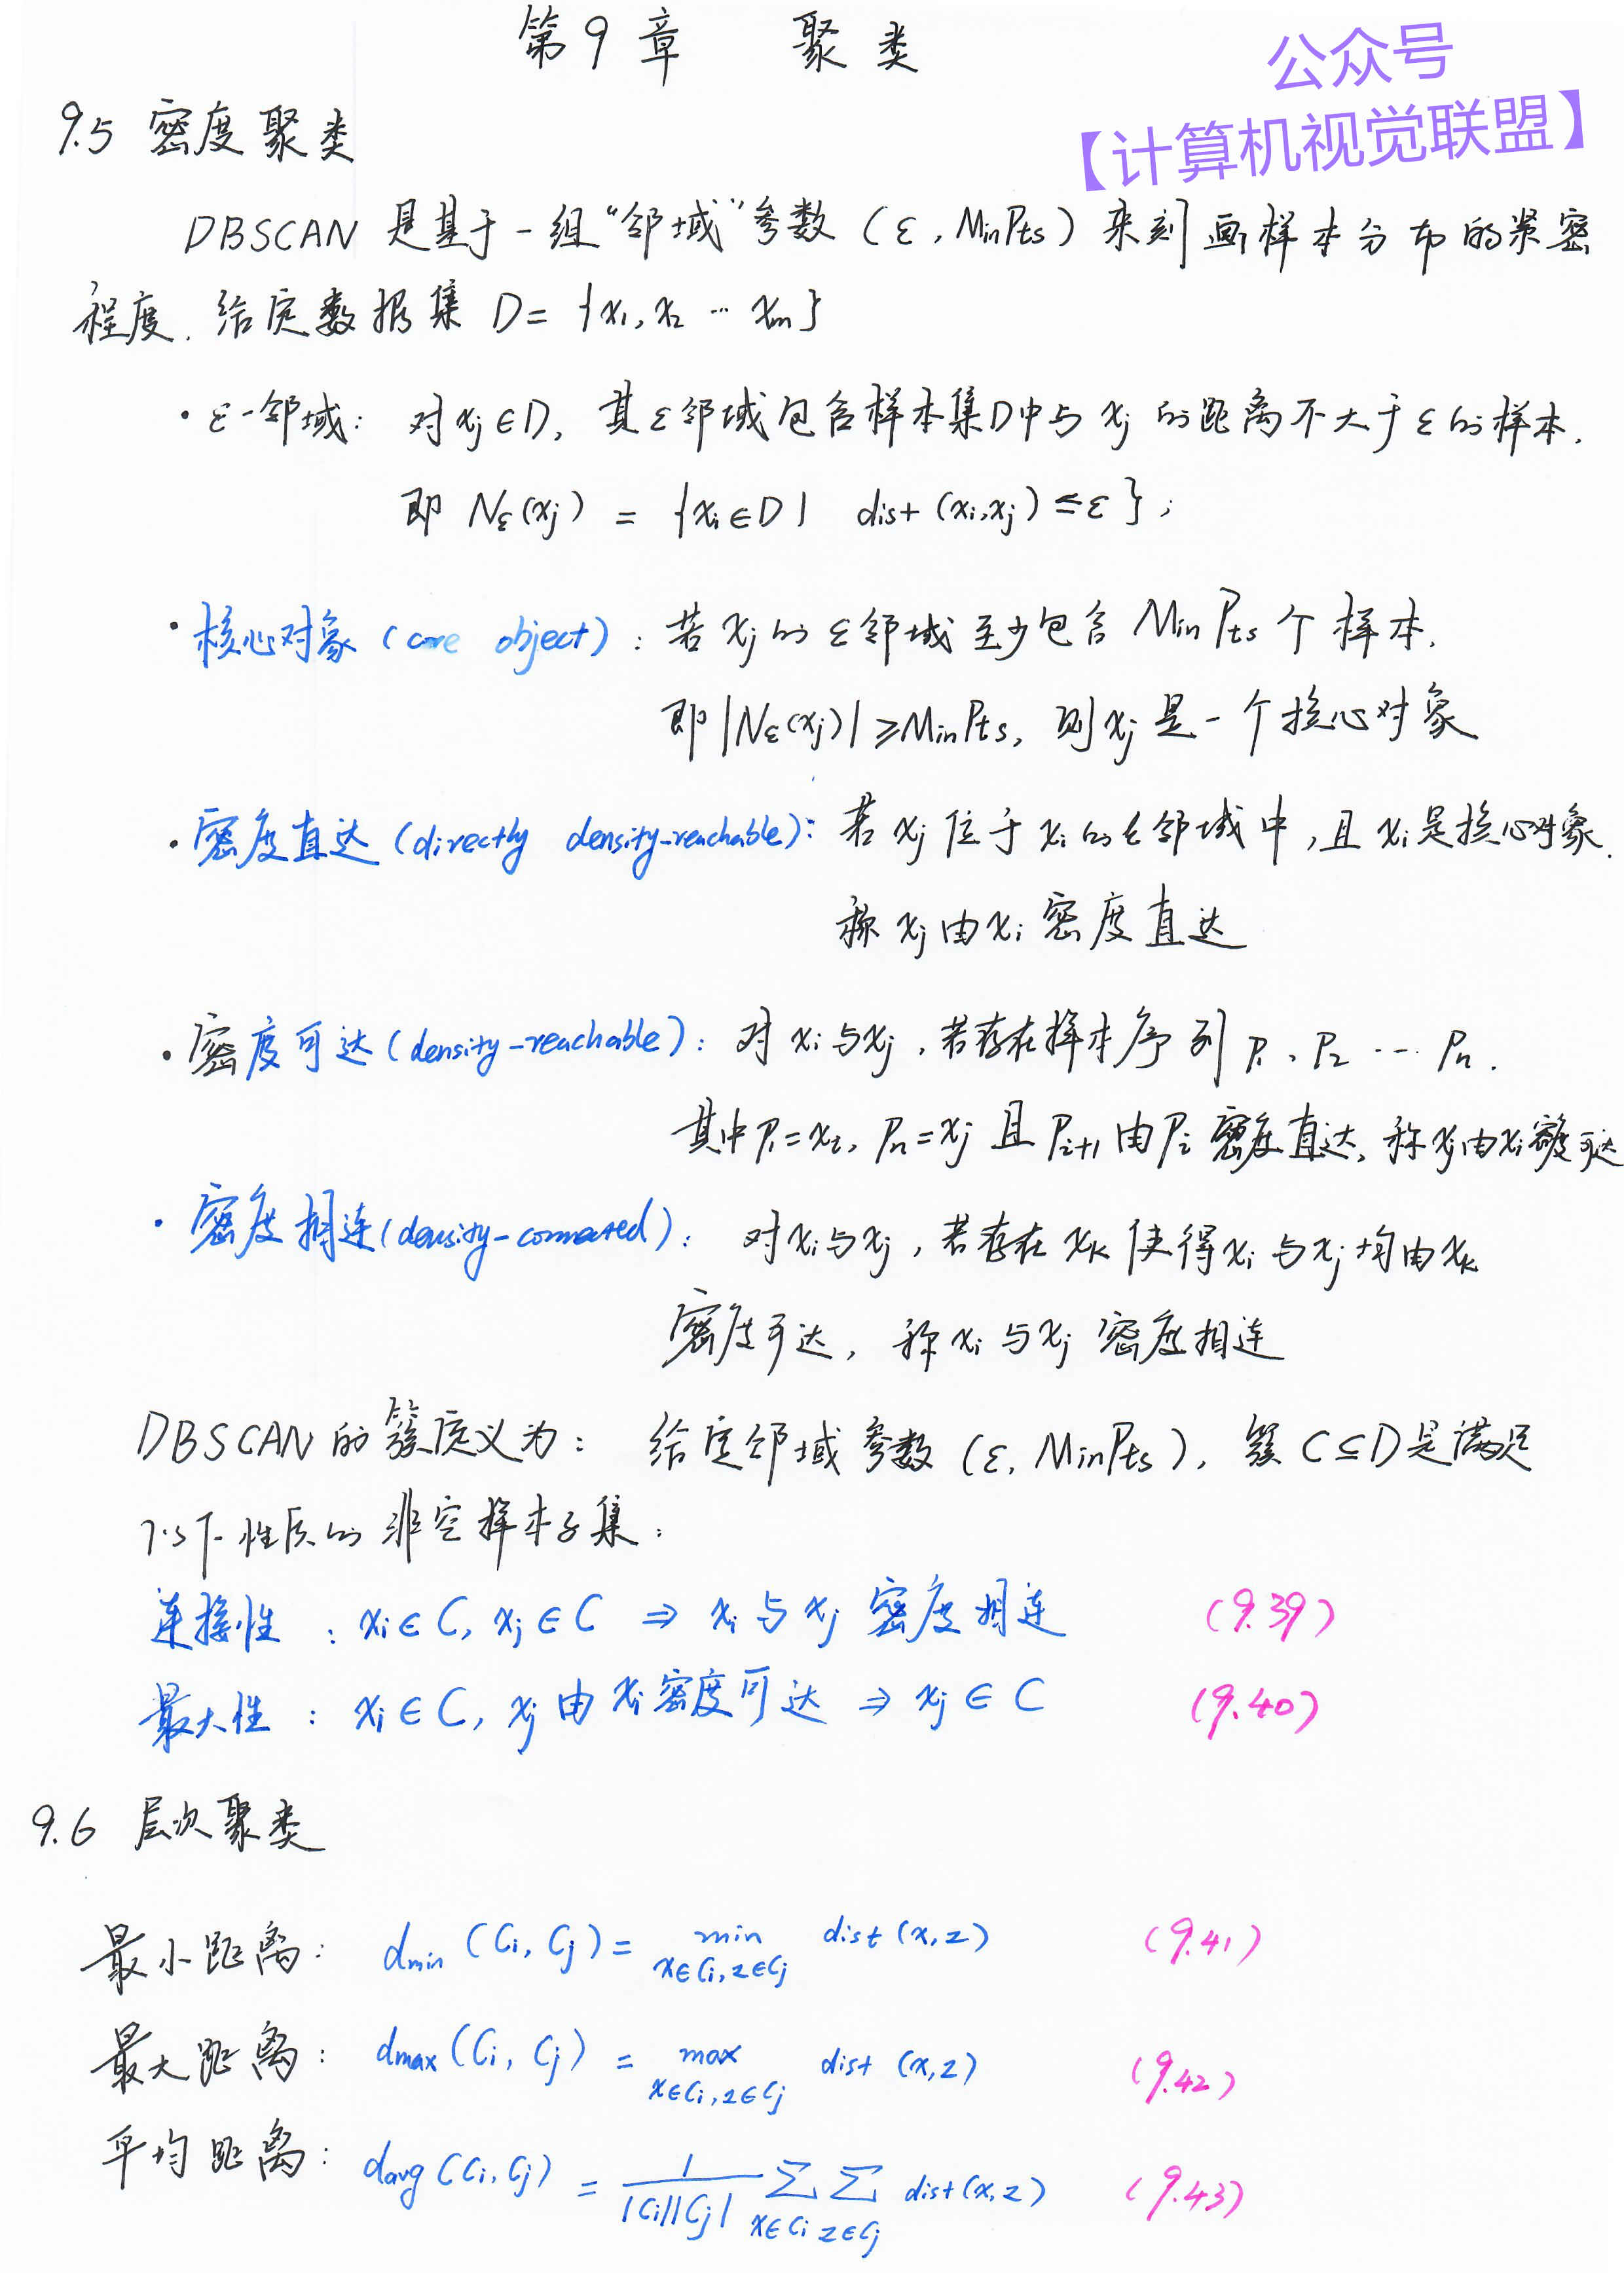 第9章 聚类
公众号
【计算机视觉联盟】
9.5 密度聚类
DBSCAN 是基于一组“邻域”参数 (ε, MinPts) 来刻画样本分布的紧密
程度. 给定数据集 D= {x₁, x₂ … xₘ}
· ε-邻域: 对 xⱼ∈D, 其ε邻域包含样本集D中与 xⱼ 的距离不大于ε的样本.
即 Nε(xⱼ) = {xᵢ∈D | dist (xᵢ,xⱼ) ≤ε };
· 核心对象 (core object): 若 xⱼ 的 ε邻域至少包含 MinPts 个样本.
即 |Nε(xⱼ)| ≥MinPts, 则 xⱼ 是一个核心对象
· 密度直达 (directly density-reachable): 若 xⱼ 位于 xᵢ 的ε邻域中, 且 xᵢ是核心对象.
称 xⱼ 由 xᵢ 密度直达
· 密度可达 (density-reachable): 对 xᵢ与xⱼ, 若存在样本序列 P₁、P₂ … Pₙ.
其中P₁=xᵢ, Pₙ=xⱼ 且 Pᵢ₊₁ 由Pᵢ 密度直达, 称xⱼ由xᵢ密度可达
· 密度相连 (density-connected): 对xᵢ与xⱼ, 若存在 xₖ 使得xᵢ与xⱼ均由xₖ
密度可达, 称 xᵢ与xⱼ 密度相连
DBSCAN 的簇定义为: 给定邻域参数 (ε, MinPts), 簇 C⊆D是满足
以下性质的非空样本子集:
连接性 : xᵢ∈C, xⱼ∈C ⇒ xᵢ与xⱼ 密度相连 (9.39)
最大性 : xᵢ∈C, xⱼ由 xᵢ密度可达 ⇒ xⱼ∈C (9.40)
9.6 层次聚类
最小距离: d_min (Cᵢ, Cⱼ) = min_{x∈Cᵢ, z∈Cⱼ} dist (x, z) (9.41)
最大距离: d_max (Cᵢ, Cⱼ) = max_{x∈Cᵢ, z∈Cⱼ} dist (x, z) (9.42)
平均距离: d_avg (Cᵢ, Cⱼ) = 1/(|Cᵢ||Cⱼ|) ∑_{x∈Cᵢ} ∑_{z∈Cⱼ} dist(x, z) (9.43)